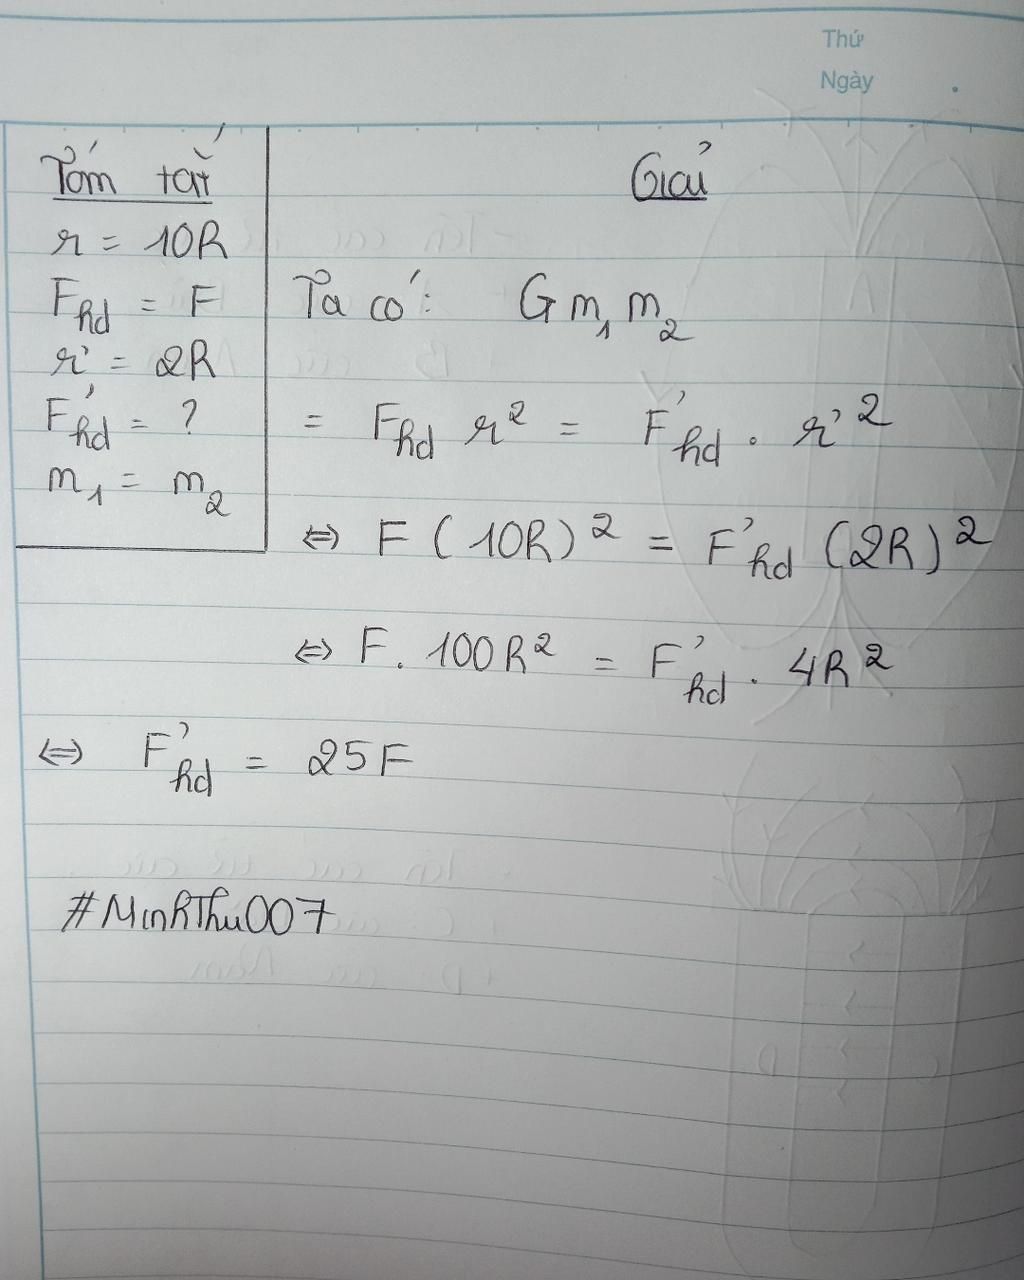 Thứ
Ngày
Tóm tắt
r = 10R
Fhd = F
r' = 2R
F'hd = ?
m1 = m2
Giải
Ta có: G m1 m2
= Fhd r² = F'hd . r'²
⇔ F (10R)² = F'hd (2R)²
⇔ F. 100R² = F'hd . 4R²
⇔ F'hd = 25F
#MinhThu007